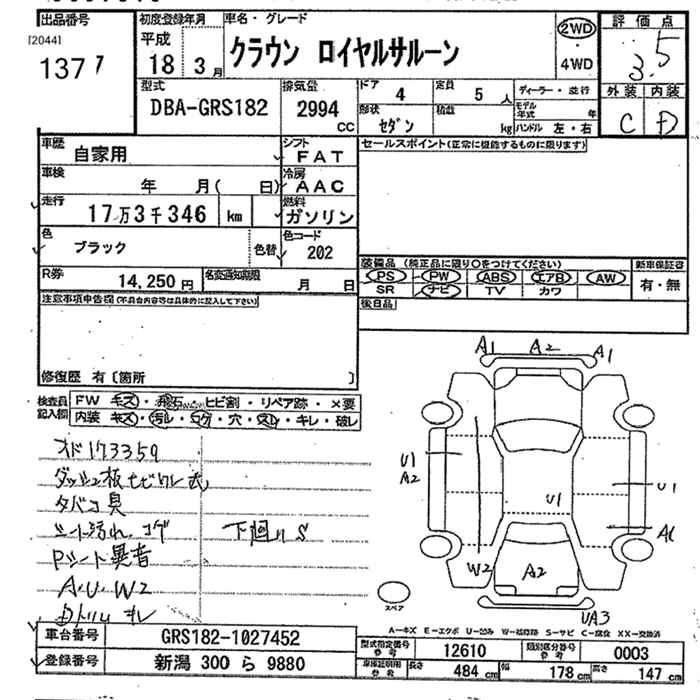 出品番号
[2044]
1377
初度登録年月
平成
18 3月
車名・グレード
クラウン ロイヤルサルーン
2WD
・
4WD
評価点
3.5
外装 内装
C D
型式
DBA-GRS182
排気量
2994
CC
ドア 4
定員 5 人
形状 セダン
積載 kg
ディーラー・並行
モデル年式 年
ハンドル 左・右
車歴
自家用
シフト
FAT
車検
年 月( 日)
冷房
AAC
走行
17万3千346 km
燃料
ガソリン
色
ブラック
色替
色コード
202
R券
14,250円
名変通知期限
月 日
セールスポイント(正常に機能するものに限ります)
装備品 (純正品に限り○をつけてください)
PS PW ABS エアB AW
SR ナビ TV カワ
新車保証書
有・無
後日品
注意事項申告欄(不具合内容等は具体的に記入して下さい)
修復歴 有〔箇所 〕
検査員
記入欄
FW キズ・飛石・ヒビ割・リペア跡・×要
内装 キズ・汚れ・コゲ・穴・スレ・キレ・破レ
オド173359
タバコ臭
シート汚れ、コゲ
下廻りS
Pシート異音
A.U.W2
A1 A2 A1
U1
A2
U1
U1
A1
W2
A2
UA3
スペア
A-キズ E-エクボ U-凹み W-補修跡 S-サビ C-腐食 XX-交換済
車台番号
GRS182-1027452
登録番号
新潟 300 ら 9880
型式指定番号
参考
12610
類別区分番号
参考
0003
車庫証明用
参考
長さ 484 cm
幅 178 cm
高さ 147 cm